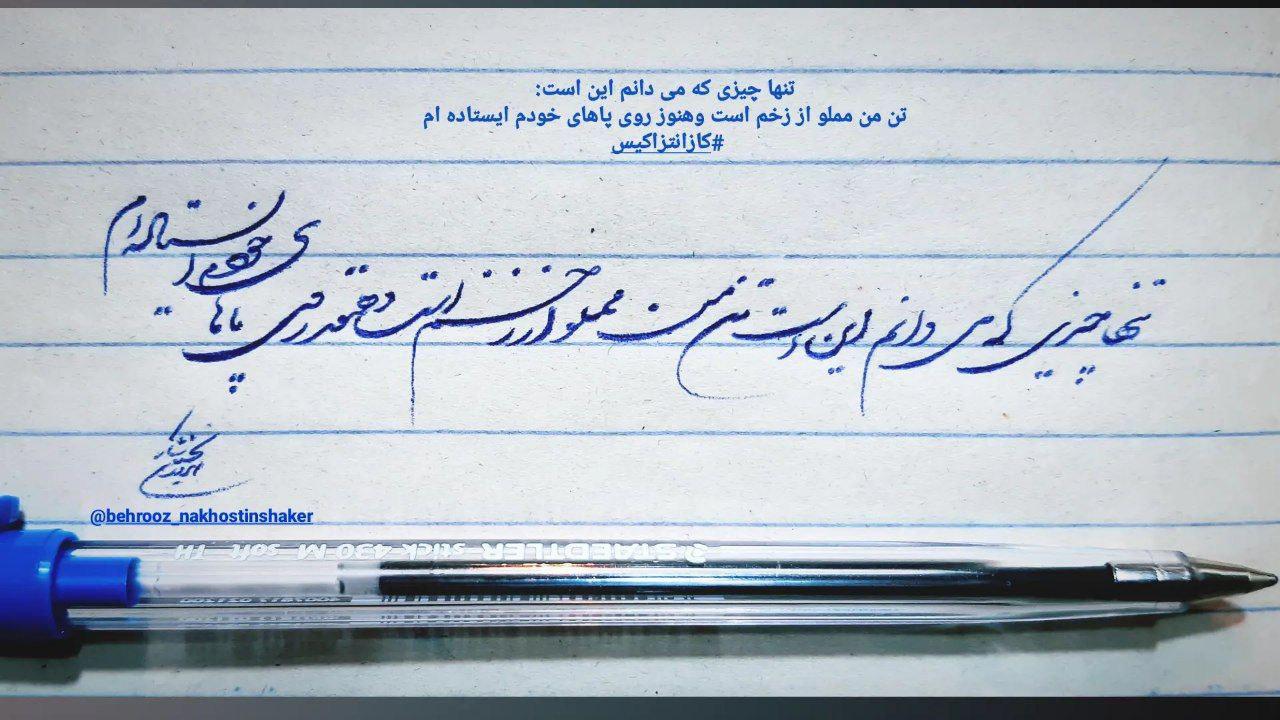 تنها چیزی که می دانم این است:
تن من مملو از زخم است وهنوز روی پاهای خودم ایستاده ام
#کازانتزاکیس
تنها چیزی که می دانم این است تن من مملو از زخم است وهنوز روی پاهای خودم ایستاده ام
@behrooz_nakhostinshaker
STAEDTLER stick 430 M soft TH